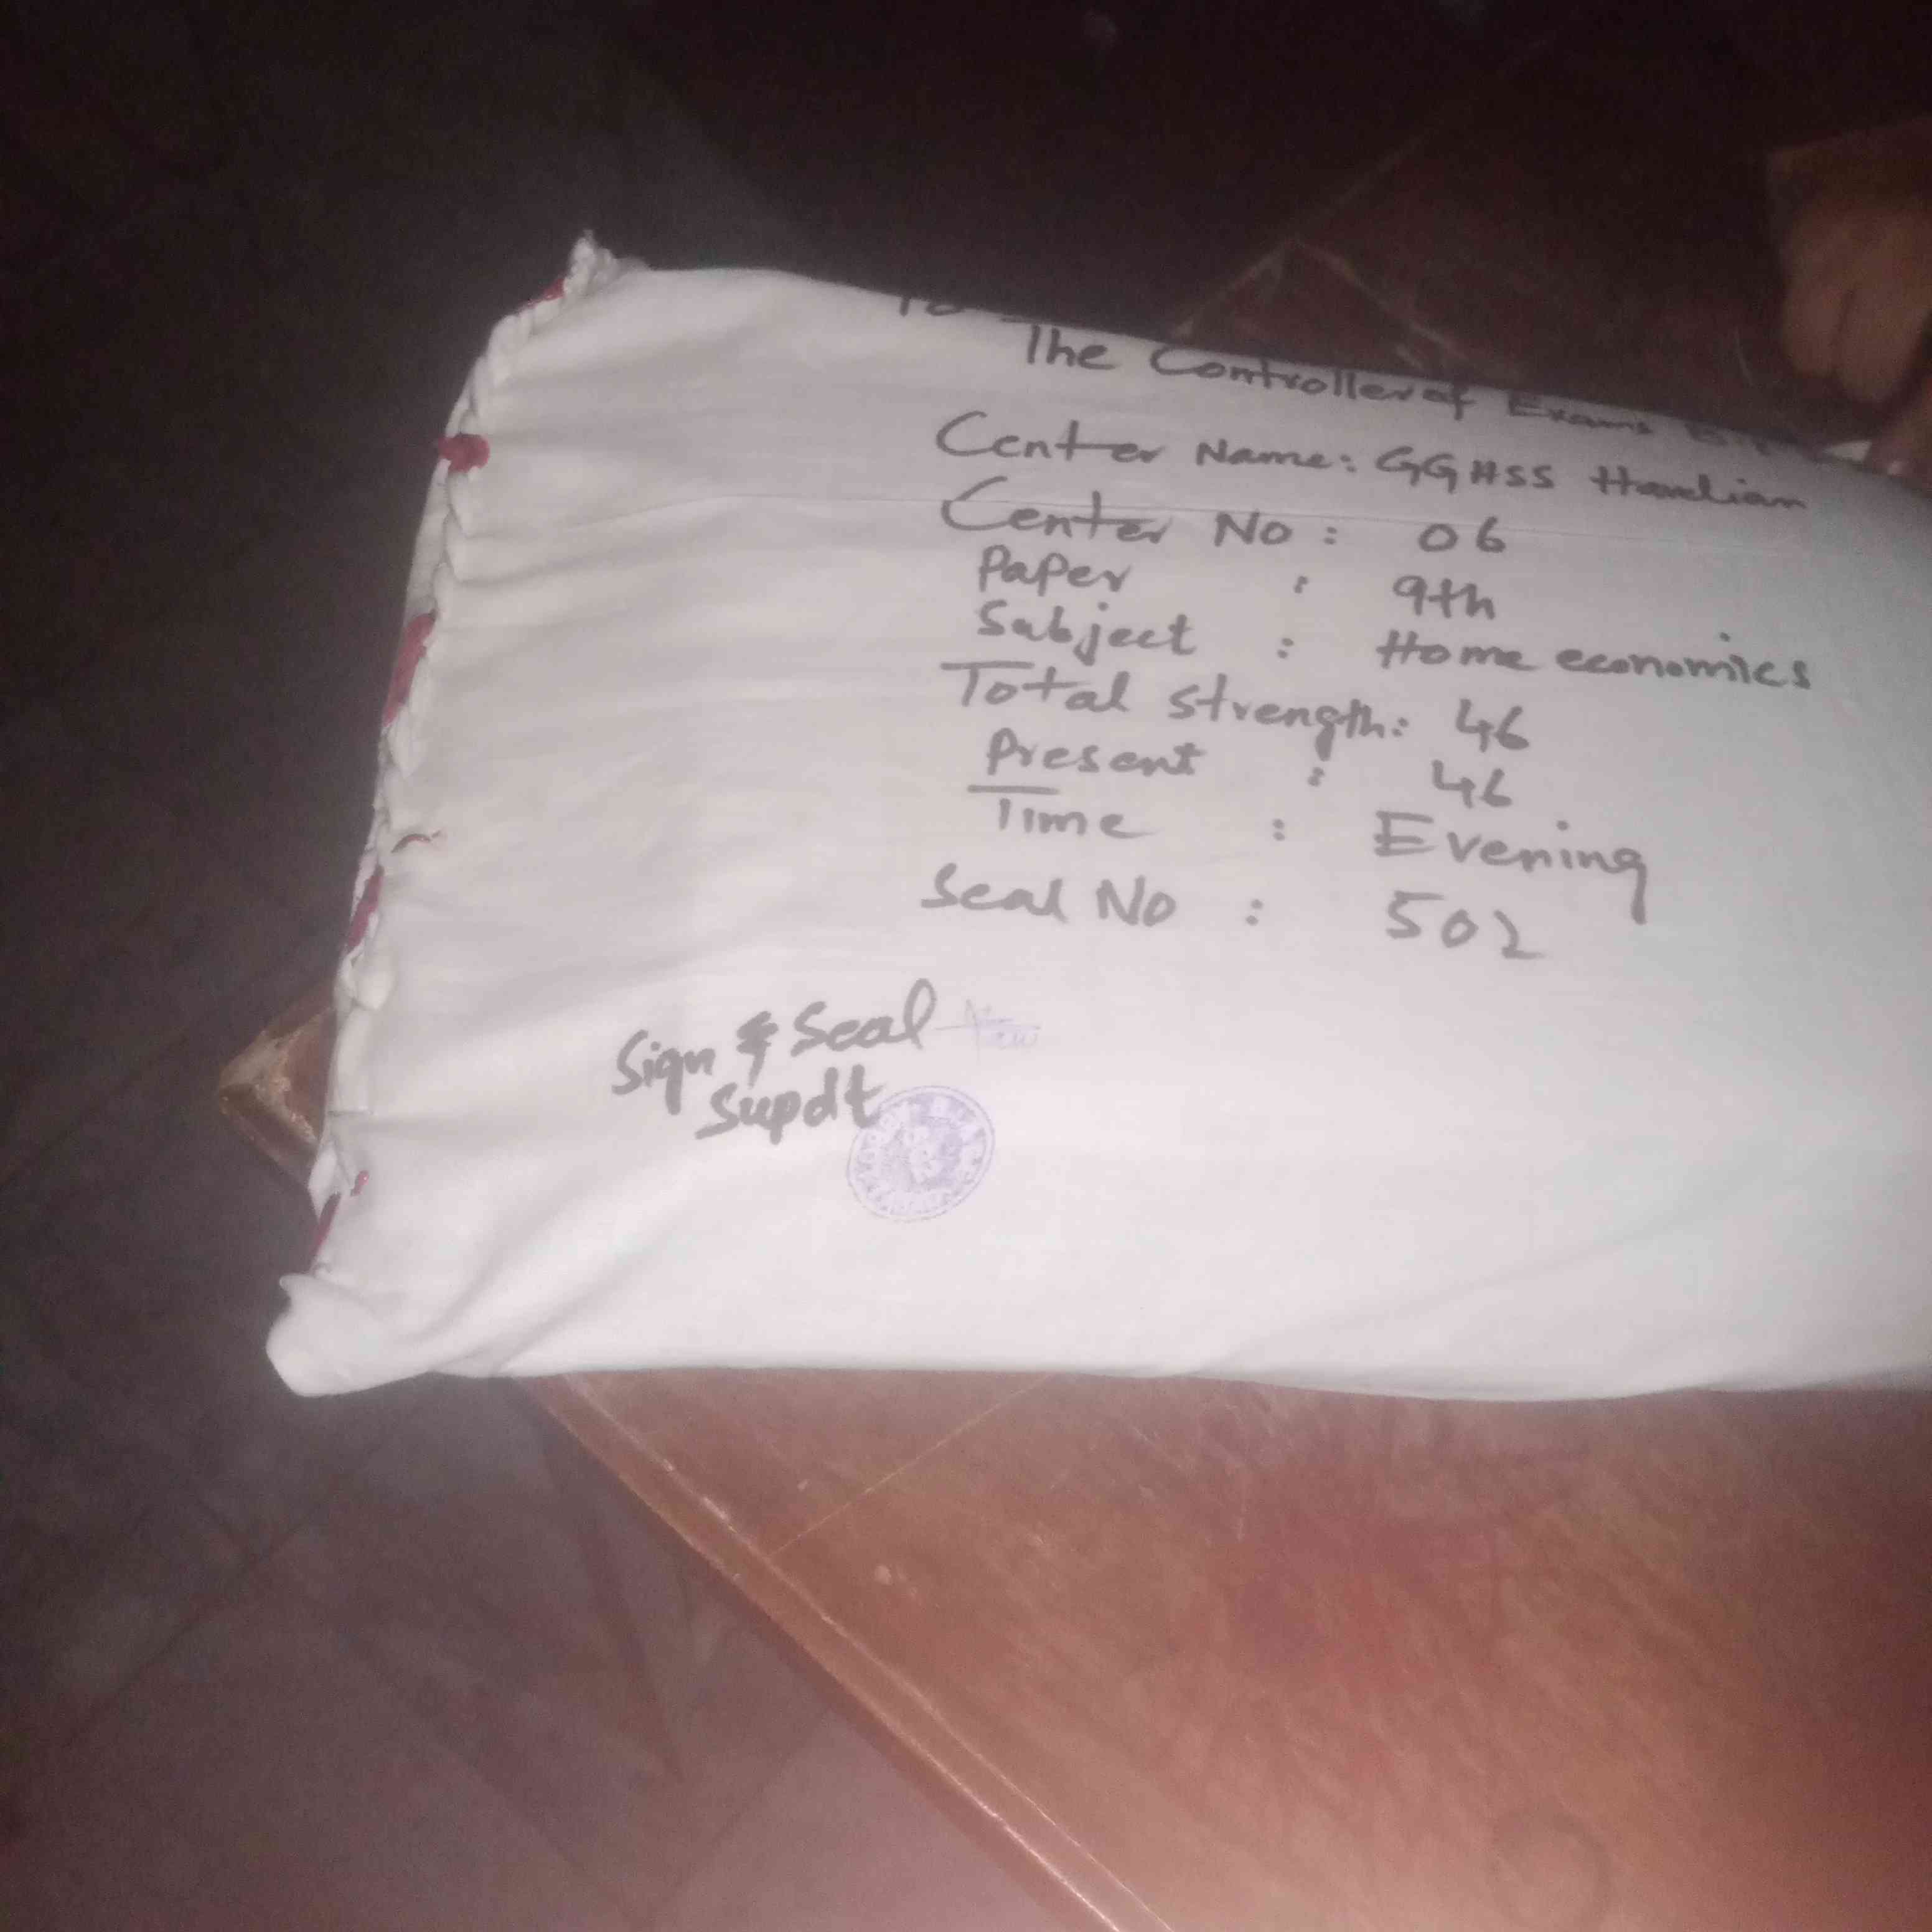 To
The Controller of Exams
Center Name: GGHSS Havelian
Center No : 06
Paper : 9th
Subject : Home economics
Total Strength: 46
Present : 46
Time : Evening
Seal No : 502
Sign & Seal
Supdt